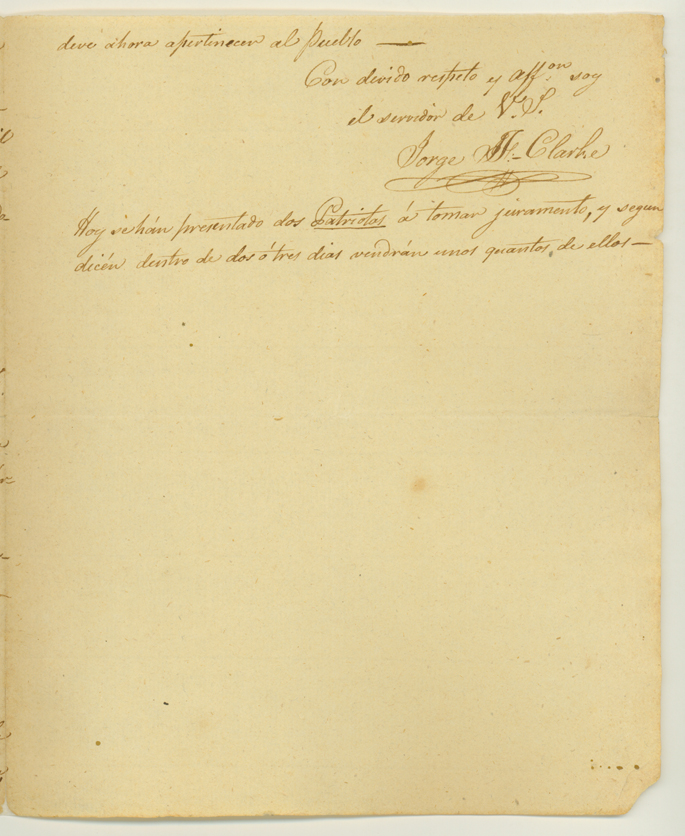 deve ahora apertinecer al Pueblo —
Con devido respeto y aff.on soy
el servidor de V.S.
Jorge Clarke
Hoy se hán presentado dos Patriotos á tomar juramento, y segun
dicén dentro de dos ó tres dias vendrán unos quantos de ellos —